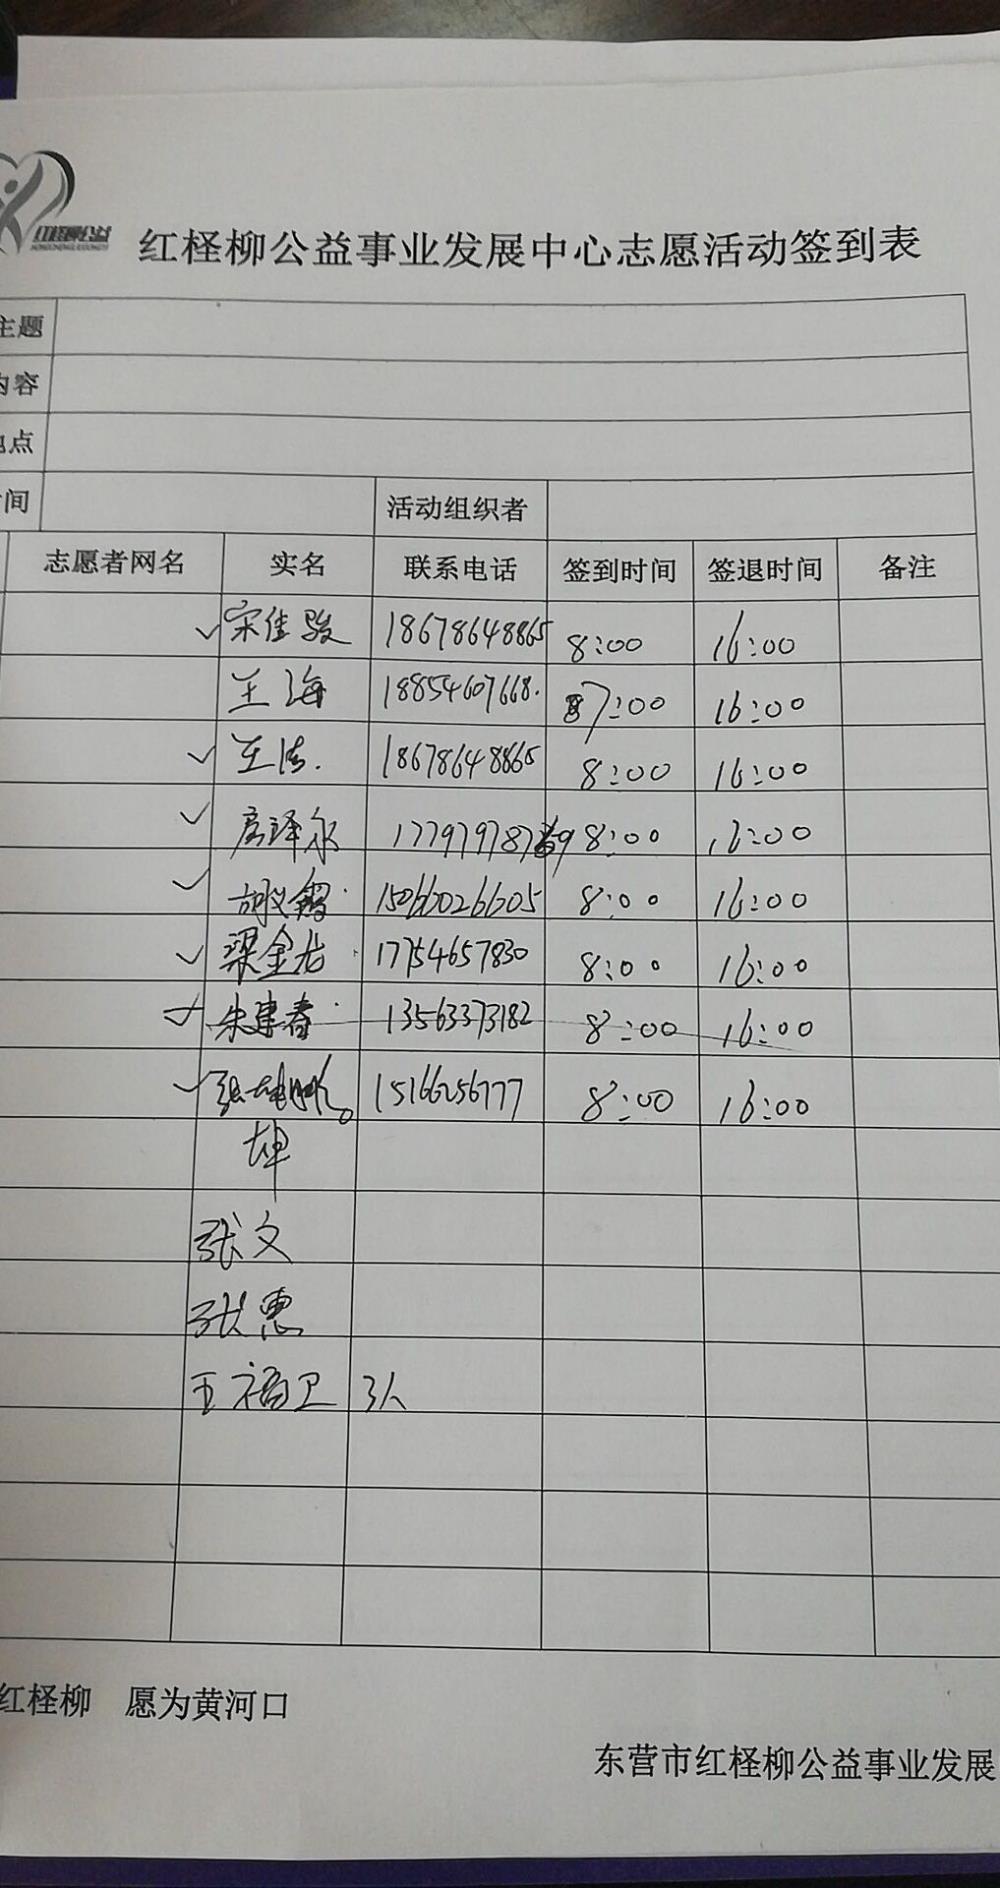 红柽柳公益
红柽柳公益事业发展中心志愿活动签到表
主题
内容
地点
间
活动组织者
志愿者网名 实名 联系电话 签到时间 签退时间 备注
宋佳骏 18678648865 8:00 16:00
王海 18854607668. 7:00 16:00
王 18678648865 8:00 16:00
房泽永 8:00 16:00
胡义 15066026605 8:00 16:00
梁金龙 17754657830 8:00 16:00
朱建春 13563373182 8:00 16:00
张 15166256777 8:00 16:00
坤
张文
张惠
王福卫 3人
红柽柳 愿为黄河口
东营市红柽柳公益事业发展